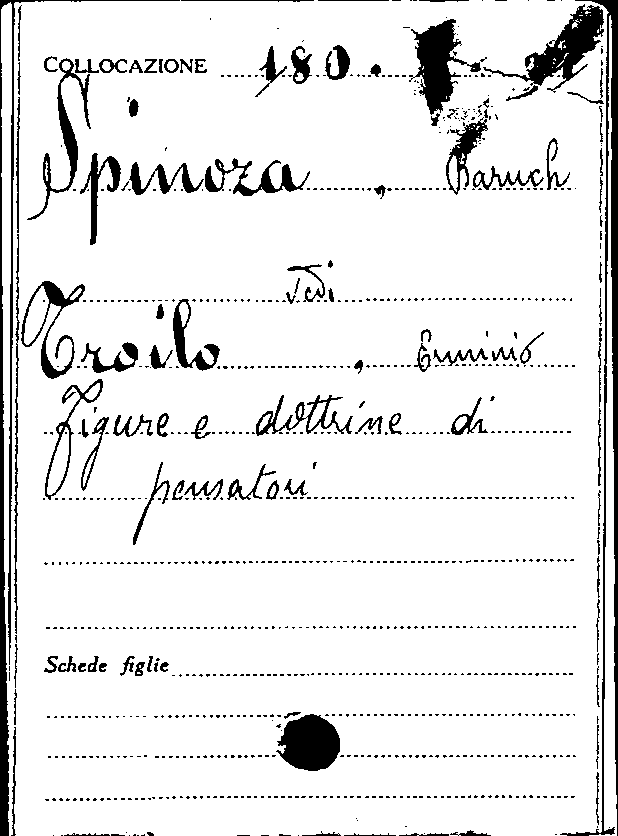 COLLOCAZIONE 180.
Spinoza, Baruch
Vedi
Troilo, Erminio
Figure e dottrine di
pensatori
Schede figlie